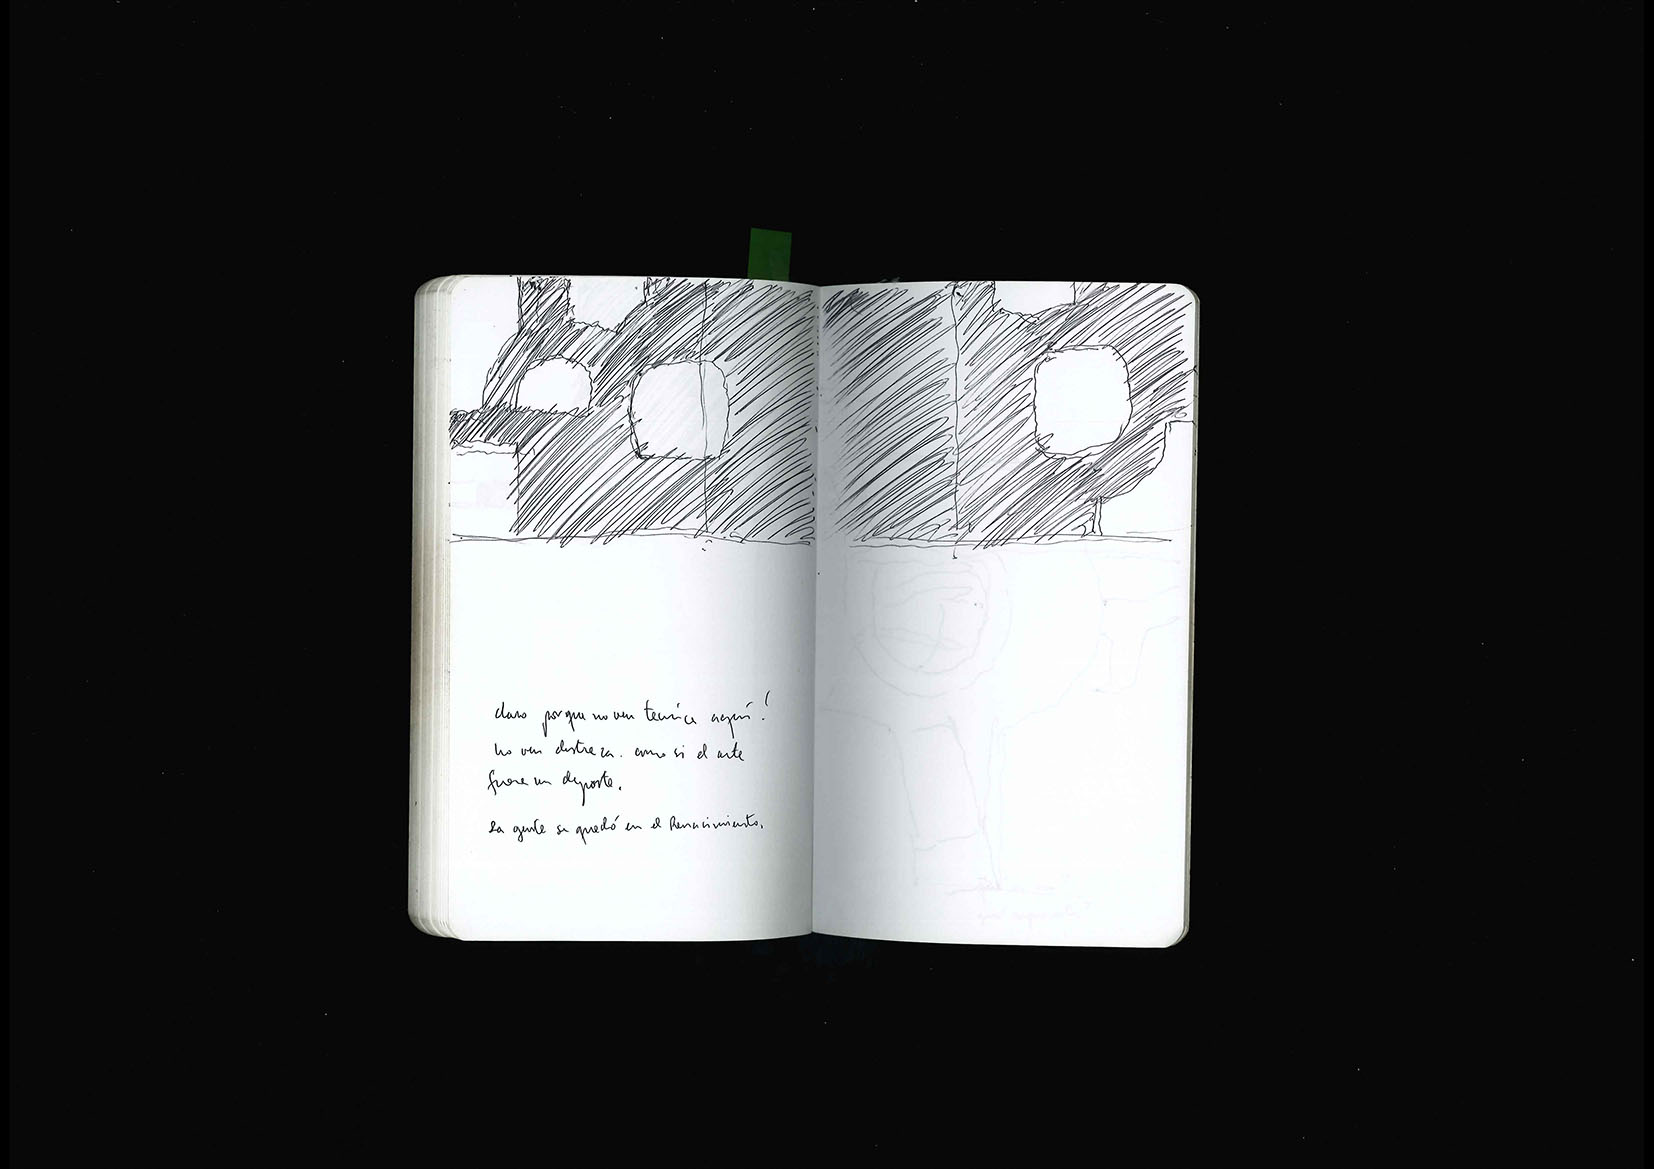 claro porque no ven tecnica aquí!
no ven destreza. como si el arte
fuera un deporte.
La gente se quedó en el Renacimiento.